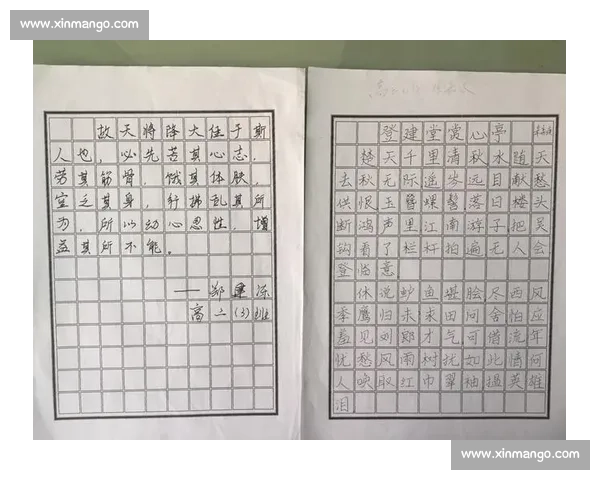 www.xinmango.com
故天将降大任于斯
人也，必先苦其心志，
劳其筋骨，饿其体肤，
空乏其身，行拂乱其所
为，所以动心忍性，增
益其所不能。
——郑
高二（3）班
登建堂赏心亭
楚天千里清秋水随天
去秋无际遥岑远目献愁
供恨玉簪螺髻落日楼头
断鸿声里江南游子把吴
钩看了栏杆拍遍无人会
登临意
休说鲈鱼堪脍.尽西风
季鹰归未求田问舍怕应
羞见刘郎才气可惜流年
忧愁风雨树犹如此情何
人唤取红巾翠袖揾英雄
泪.
www.xinmango.com